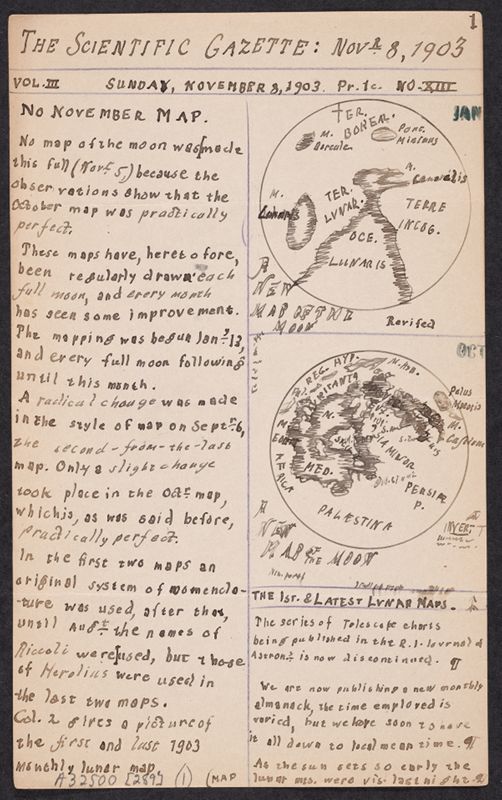 1
THE SCIENTIFIC GAZETTE: NOVR 8, 1903
VOL. III SUNDAY, NOVEMBER 8, 1903. Pr. 1c. NO. XIII
NO NOVEMBER MAP.
No map of the moon was made
this full (Novr. 5,) because the
observations show that the
October map was practically
perfect.
These maps have, heretofore,
been regularly drawn each
full moon, and every month
has seen some improvement.
The mapping was begun Jany 13,
and every full moon following
until this month.
A radical change was made
in the style of map on Septr. 6,
the second-from-the-last
map. Only a slight change
took place in the Octr map,
which is, as was said before,
practically perfect.
In the first two maps an
original system of nomencla-
ture was used, after that,
until Augt the names of
Riccoli were used, but those
of Hevelius were used in
the last two maps.
Col. 2 gives a picture of
the first and last 1903
monthly lunar map.
A32500 [289] (1) (MAP
JAN
TER.
BOREAL.
M.
Hercule.
Panc.
Mictons
M.
Lunaris
TER.
LUNAR.
TERRE
INCOG.
OCE.
LUNARIS
A
NEW
MAP OF THE
MOON
Revised
OCT
REG. HYP.
Palus
Maeotis
M.
AFRICA
MED.
MINOR
PERSIAE
P.
PALESTINA
INVERT
A
NEW
MAP OF THE MOON
THE 1ST. & LATEST LUNAR MAPS.
The series of Telescope charts
being published in the R.I. Journal of
Astron. is now discontinued. ¶
We are now publishing a new monthly
almanack, the time employed is
varied, but we hope soon to have
it all down to local mean time. ¶
As the sun sets so early the
lunar mts. were vis. last night. ¶